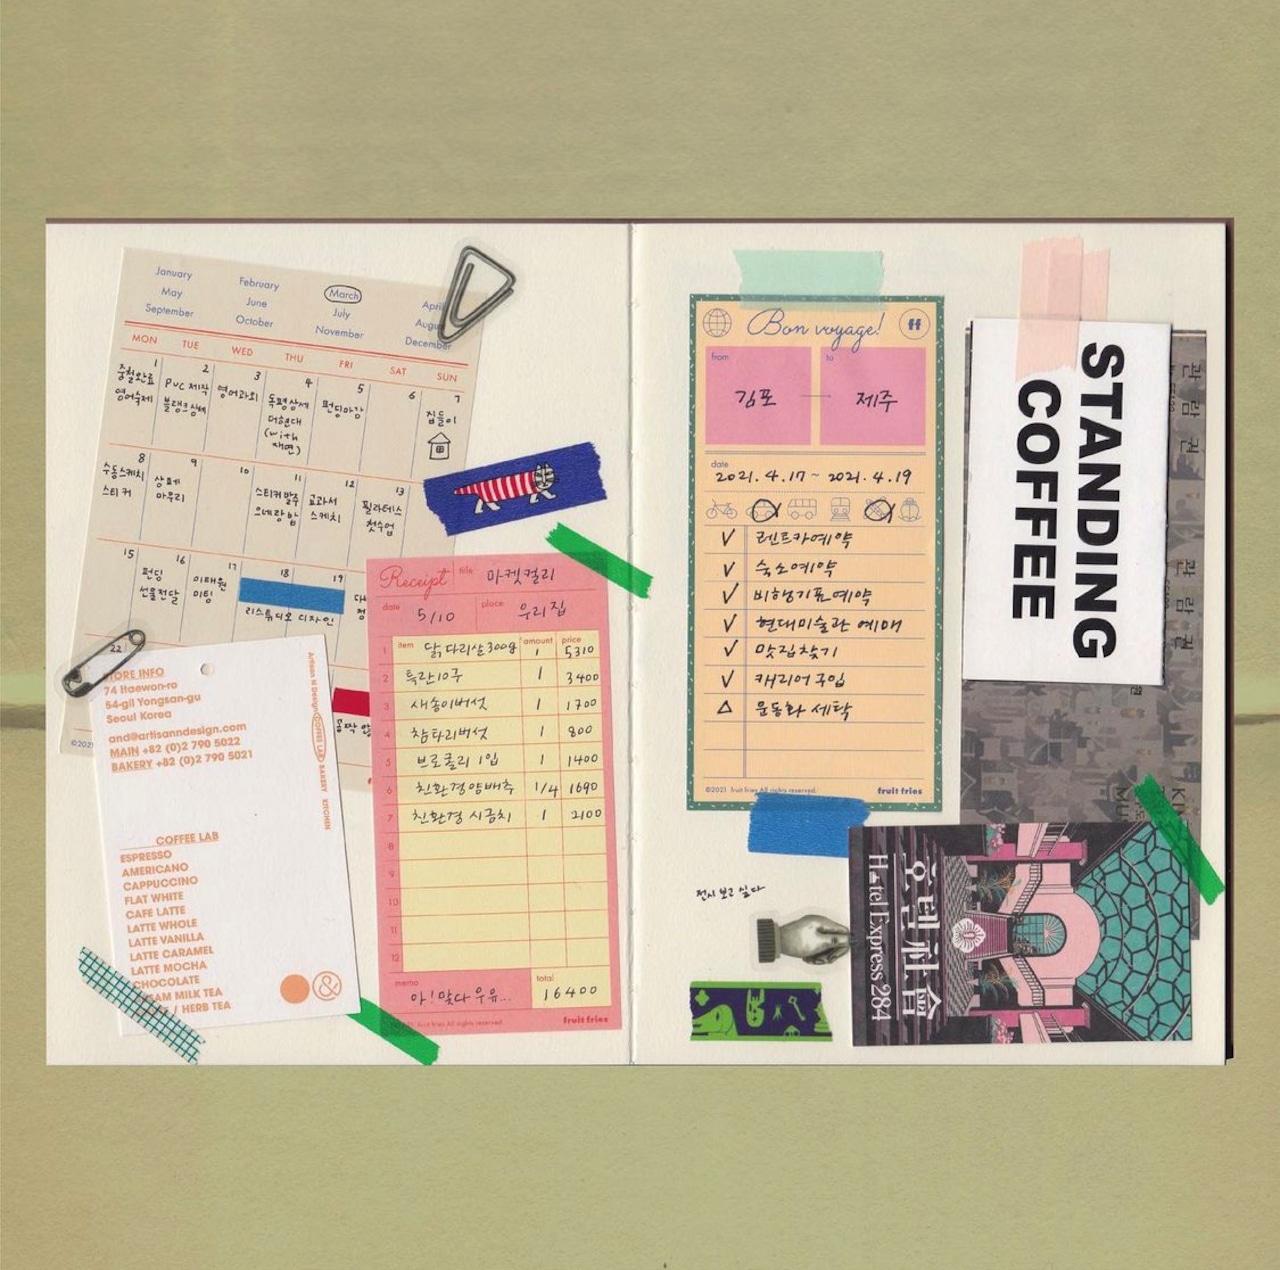 January
February
March
April
May
June
July
September
October
November
December
MON TUE WED THU FRI SAT SUN
1
2
3
4
5
6
7
중철완료
영어숙제
PVC 제작
블랭크상세
영어과외
독평상세
더현대
(with
채연)
펀딩마감
집들이
8
9
10
11
12
13
수동스케치
스티커
상페
마무리
스티커발주
교과서
스케치
필라테스
첫수업
15
16
17
18
19
펀딩
선물전달
이태원
미팅
리스튜디오 디자인
22
©2021
STORE INFO
74 Itaewon-ro
54-gil Yongsan-gu
Seoul Korea
and@artisanndesign.com
MAIN +82 (0)2 790 5022
BAKERY +82 (0)2 790 5021
Artisan N Design COFFEE LAB BAKERY KITCHEN
COFFEE LAB
ESPRESSO
AMERICANO
CAPPUCCINO
FLAT WHITE
CAFE LATTE
LATTE WHOLE
LATTE VANILLA
LATTE CARAMEL
LATTE MOCHA
CHOCOLATE
MILK TEA
/ HERB TEA
&
Receipt title 마켓컬리
date 5/10 place 우리집
item amount price
1 닭다리살300g 1 5310
2 특란10구 1 3400
3 새송이버섯 1 1700
4 참타리버섯 1 800
5 브로콜리 1입 1 1400
6 친환경양배추 1/4 1690
7 친환경 시금치 1 2100
8
9
10
11
12
memo 아! 맞다 우유...
total 16400
All rights reserved. fruit fries
Bon voyage! ff
from 김포
to 제주
date
2021. 4. 17 ~ 2021. 4. 19
렌트카예약
숙소예약
비행기표예약
현대미술관 예매
맛집찾기
캐리어구입
운동화 세탁
©2021 fruit fries All rights reserved. fruit fries
STANDING
COFFEE
관람권
관람권
전시 보고 싶다
호텔사회
Hotel Express 284